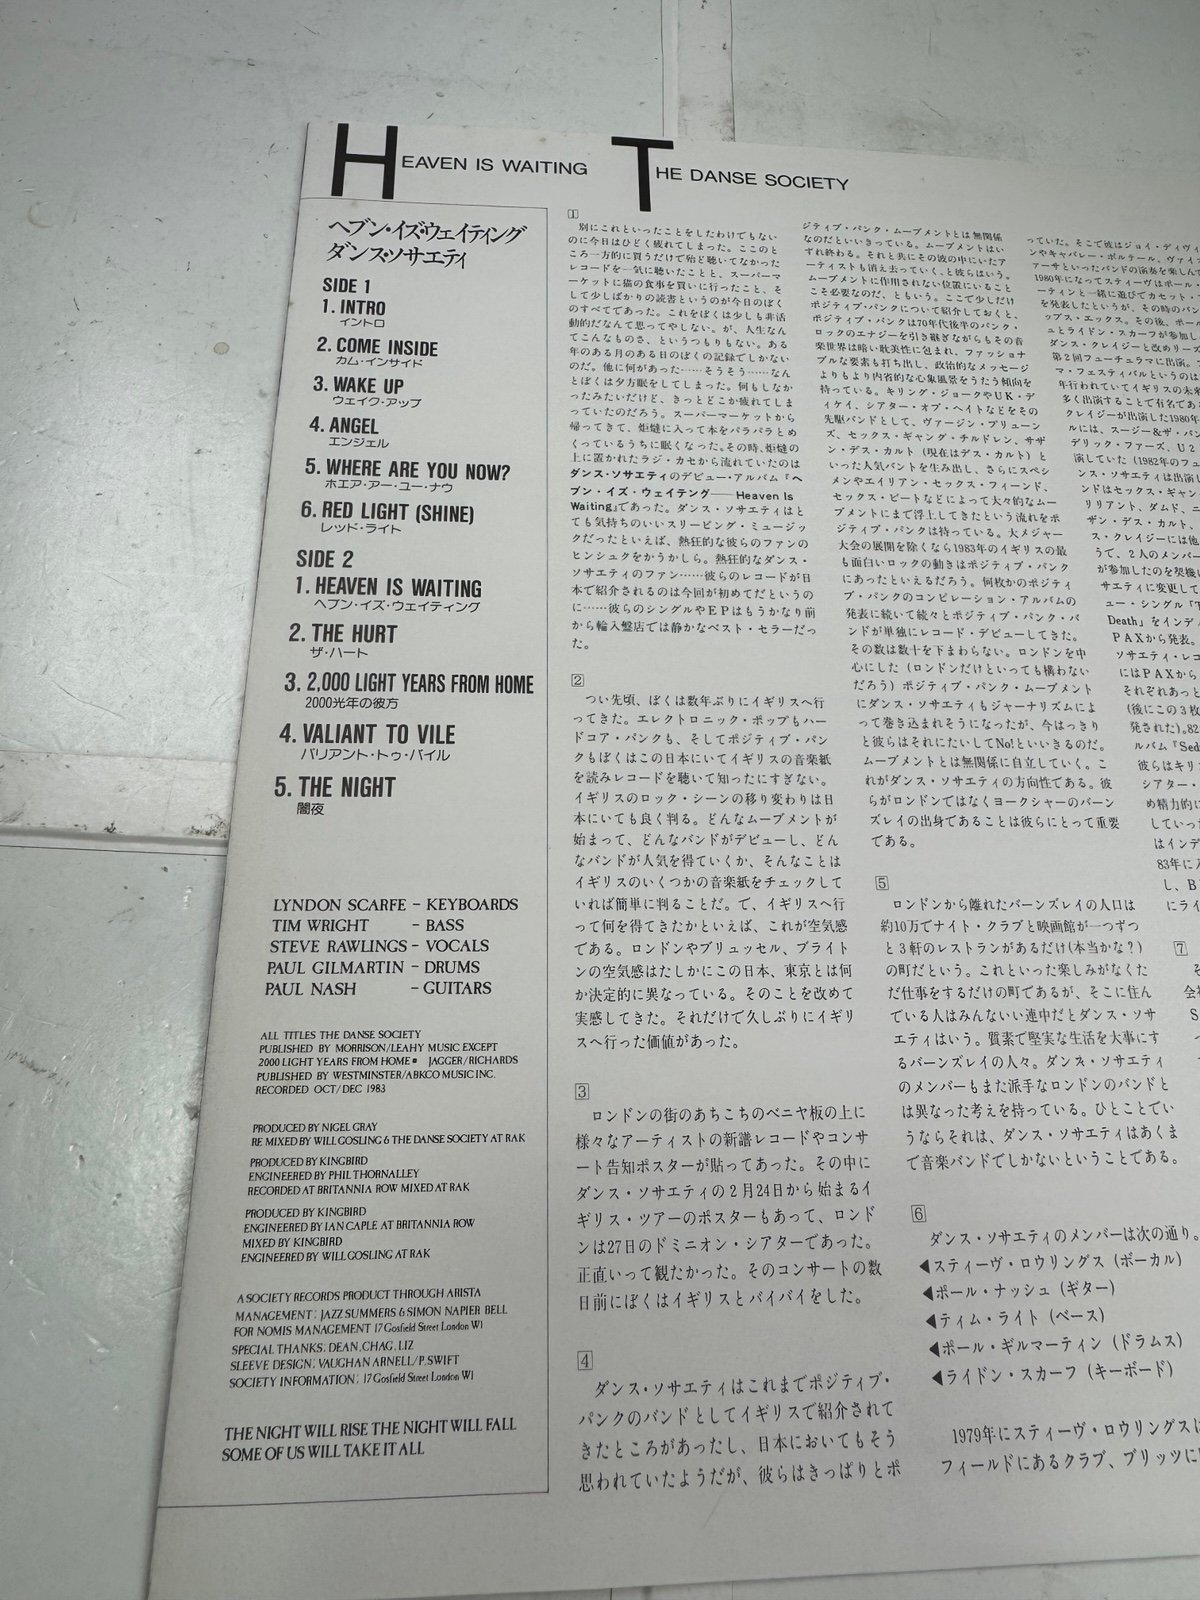 HEAVEN IS WAITING THE DANSE SOCIETY
ヘブン・イズ・ウェイティング
ダンス・ソサエティ
SIDE 1
1. INTRO
イントロ
2. COME INSIDE
カム・インサイド
3. WAKE UP
ウェイク・アップ
4. ANGEL
エンジェル
5. WHERE ARE YOU NOW?
ホエア・アー・ユー・ナウ
6. RED LIGHT (SHINE)
レッド・ライト
SIDE 2
1. HEAVEN IS WAITING
ヘブン・イズ・ウェイティング
2. THE HURT
ザ・ハート
3. 2,000 LIGHT YEARS FROM HOME
2000光年の彼方
4. VALIANT TO VILE
バリアント・トゥ・バイル
5. THE NIGHT
闇夜
LYNDON SCARFE – KEYBOARDS
TIM WRIGHT – BASS
STEVE RAWLINGS – VOCALS
PAUL GILMARTIN – DRUMS
PAUL NASH – GUITARS
ALL TITLES THE DANSE SOCIETY
PUBLISHED BY MORRISON/LEAHY MUSIC EXCEPT
2000 LIGHT YEARS FROM HOME JAGGER/RICHARDS
PUBLISHED BY WESTMINSTER/ABKCO MUSIC INC.
RECORDED OCT/DEC 1983
PRODUCED BY NIGEL GRAY
RE MIXED BY WILL GOSLING & THE DANSE SOCIETY AT RAK
PRODUCED BY KINGBIRD
ENGINEERED BY PHIL THORNALLEY
RECORDED AT BRITANNIA ROW MIXED AT RAK
PRODUCED BY KINGBIRD
ENGINEERED BY IAN CAPLE AT BRITANNIA ROW
MIXED BY KINGBIRD
ENGINEERED BY WILL GOSLING AT RAK
A SOCIETY RECORDS PRODUCT THROUGH ARISTA
MANAGEMENT: JAZZ SUMMERS & SIMON NAPIER BELL
FOR NOMIS MANAGEMENT 17 Gosfield Street London W1
SPECIAL THANKS: DEAN, CHAG, LIZ
SLEEVE DESIGN: VAUGHAN ARNELL/P. SWIFT
SOCIETY INFORMATION: 17 Gosfield Street London W1
THE NIGHT WILL RISE THE NIGHT WILL FALL
SOME OF US WILL TAKE IT ALL
1
別にこれといったことをしたわけでもない
のに今日はひどく疲れてしまった。ここのと
ころ一方的に買うだけで殆ど聴いてなかった
レコードを一気に聴いたことと、スーパーマ
ーケットに猫の食事を買いに行ったこと、そ
して少しばかりの読書というのが今日のぼく
のすべてであった。これをぼくは少しも非活
動的だなんて思ってやしない。が、人生なん
てこんなものさ、というつもりもない。ある
年のある月のある日のぼくの記録でしかない
のだ。他に何があった……そうそう……なん
とぼくは夕方眠をしてしまった。何もしなか
ったみたいだけど、きっとどこか疲れてしま
っていたのだろう。スーパーマーケットから
帰ってきて、炬燵に入って本をパラパラとめ
くっているうちに眠くなった。その時、炬燵の
上に置かれたラジ・カセから流れていたのは
ダンス・ソサエティのデビュー・アルバム『ヘ
ブン・イズ・ウェイテング── Heaven Is
Waiting』であった。ダンス・ソサエティはと
ても気持ちのいいスリーピング・ミュージッ
クだったといえば、熱狂的な彼らのファンの
ヒンシュクをかうかしら。熱狂的なダンス・
ソサエティのファン……彼らのレコードが日
本で紹介されるのは今回が初めてだというの
に……彼らのシングルやEPはもうかなり前
から輸入盤店では静かなベスト・セラーだっ
た。
2
つい先頃、ぼくは数年ぶりにイギリスへ行
ってきた。エレクトロニック・ポップもハー
ドコア・パンクも、そしてポジティブ・パン
クもぼくはこの日本にいてイギリスの音楽紙
を読みレコードを聴いて知ったにすぎない。
イギリスのロック・シーンの移り変わりは日
本にいても良く判る。どんなムーブメントが
始まって、どんなバンドがデビューし、どん
なバンドが人気を得ていくか、そんなことは
イギリスのいくつかの音楽紙をチェックして
いれば簡単に判ることだ。で、イギリスへ行
って何を得てきたかといえば、これが空気感
である。ロンドンやブリュッセル、ブライト
ンの空気感はたしかにこの日本、東京とは何
か決定的に異なっている。そのことを改めて
実感してきた。それだけで久しぶりにイギリ
スへ行った価値があった。
3
ロンドンの街のあちこちのベニヤ板の上に
様々なアーティストの新譜レコードやコンサ
ート告知ポスターが貼ってあった。その中に
ダンス・ソサエティの2月24日から始まるイ
ギリス・ツアーのポスターもあって、ロンド
ンは27日のドミニオン・シアターであった。
正直いって観たかった。そのコンサートの数
日前にぼくはイギリスとバイバイをした。
4
ダンス・ソサエティはこれまでポジティブ・
パンクのバンドとしてイギリスで紹介されて
きたところがあったし、日本においてもそう
思われていたようだが、彼らはきっぱりとポ
ジティブ・パンク・ムーブメントとは無関係
なのだといいきっている。ムーブメントはい
ずれ終わる。それと共にその波の中にいたア
ーティストも消え去っていく、と彼らはいう。
ムーブメントに作用されない位置にいること
こそ必要なのだ、ともいう。ここで少しだけ
ポジティブ・パンクについて紹介しておくと、
ポジティブ・パンクは70年代後半のパンク・
ロックのエナジーを引き継ぎながらもその音
楽世界は暗い耽美性に包まれ、ファッショナ
ブルな要素も打ち出し、政治的なメッセージ
よりもより内省的な心象風景をうたう傾向を
持っている。キリング・ジョークやUK・デ
ィケイ、シアター・オブ・ヘイトなどをその
先駆バンドとして、ヴァージン・プリューン
ズ、セックス・ギャング・チルドレン、サザ
ン・デス・カルト（現在はデス・カルト）と
いった人気バントを生み出し、さらにスペシ
メンやエイリアン・セックス・フィーンド、
セックス・ビートなどによって大々的なムー
ブメントにまで浮上してきたという流れをポ
ジティブ・パンクは持っている。大メジャー
大会の展開を除くなら1983年のイギリスの最
も面白いロックの動きはポジティブ・パンク
にあったといえるだろう。何枚かのポジティ
ブ・パンクのコンピレーション・アルバムの
発表に続いて続々とポジティブ・パンク・バ
ンドが単独にレコード・デビューしてきた。
その数は数十を下まわらない。ロンドンを中
心にした（ロンドンだけといっても構わない
だろう）ポジティブ・パンク・ムーブメント
にダンス・ソサエティもジャーナリズムによ
って巻き込まれそうになったが、今はっきり
と彼らはそれにたいしてNo!といいきるのだ。
ムーブメントとは無関係に自立していく。こ
れがダンス・ソサエティの方向性である。彼
らがロンドンではなくヨークシャーのバーン
ズレイの出身であることは彼らにとって重要
である。
5
ロンドンから離れたバーンズレイの人口は
約10万でナイト・クラブと映画館が一つずつ
と3軒のレストランがあるだけ(本当かな？)
の町だという。これといった楽しみがなくた
だ仕事をするだけの町であるが、そこに住ん
でいる人はみんないい連中だとダンス・ソサ
エティはいう。質素で堅実な生活を大事にす
るバーンズレイの人々。ダンス・ソサエティ
のメンバーもまた派手なロンドンのバンドと
は異なった考えを持っている。ひとことでい
うならそれは、ダンス・ソサエティはあくま
で音楽バンドでしかないということである。
6
ダンス・ソサエティのメンバーは次の通り。
◀スティーヴ・ロウリングス（ボーカル）
◀ポール・ナッシュ（ギター）
◀ティム・ライト（ベース）
◀ポール・ギルマーティン（ドラムス）
◀ライドン・スカーフ（キーボード）
1979年にスティーヴ・ロウリングスは
フィールドにあるクラブ、ブリッツに
っていた。そこで彼はジョイ・ディヴィ
ンやキャバレー・ボルテール、ヴァイス
アーサといったバンドの演奏を楽しんで
1980年になってスティーヴはポール・
ーティンと一緒に遊びでカセット・
を発表したというが、その時のバン
ップス・エックス。その後、ポール
ュとライドン・スカーフが参加し
ダンス・クレイジーと改めリーズ
第2回フューチュラマに出演。フ
マ・フェスティバルというのは
年行われていてイギリスの未来
多く出演することで有名であ
クレイジーが出演した1980年
ルには、スージー＆ザ・バン
デリック・ファーズ、U2
演していた（1982年のフュ
ンス・ソサエティは出演し
ンドはセックス・ギャン
リリアント、ダムド、ニ
ザン・デス・カルト、
ス・クレイジーには他
うで、2人のメンバー
が参加したのを契機に
サエティに変更して
ュー・シングル「T
Death」をインデ
PAXから発表。
ソサエティ・レコ
にはPAXから
それぞれあっと
(後にこの3枚
発された)。82
ルバム『Sed
彼らはキリ
シアター・
め精力的に
していった
はインデ
83年に入
し、B
にライ
7
そ
会社
S